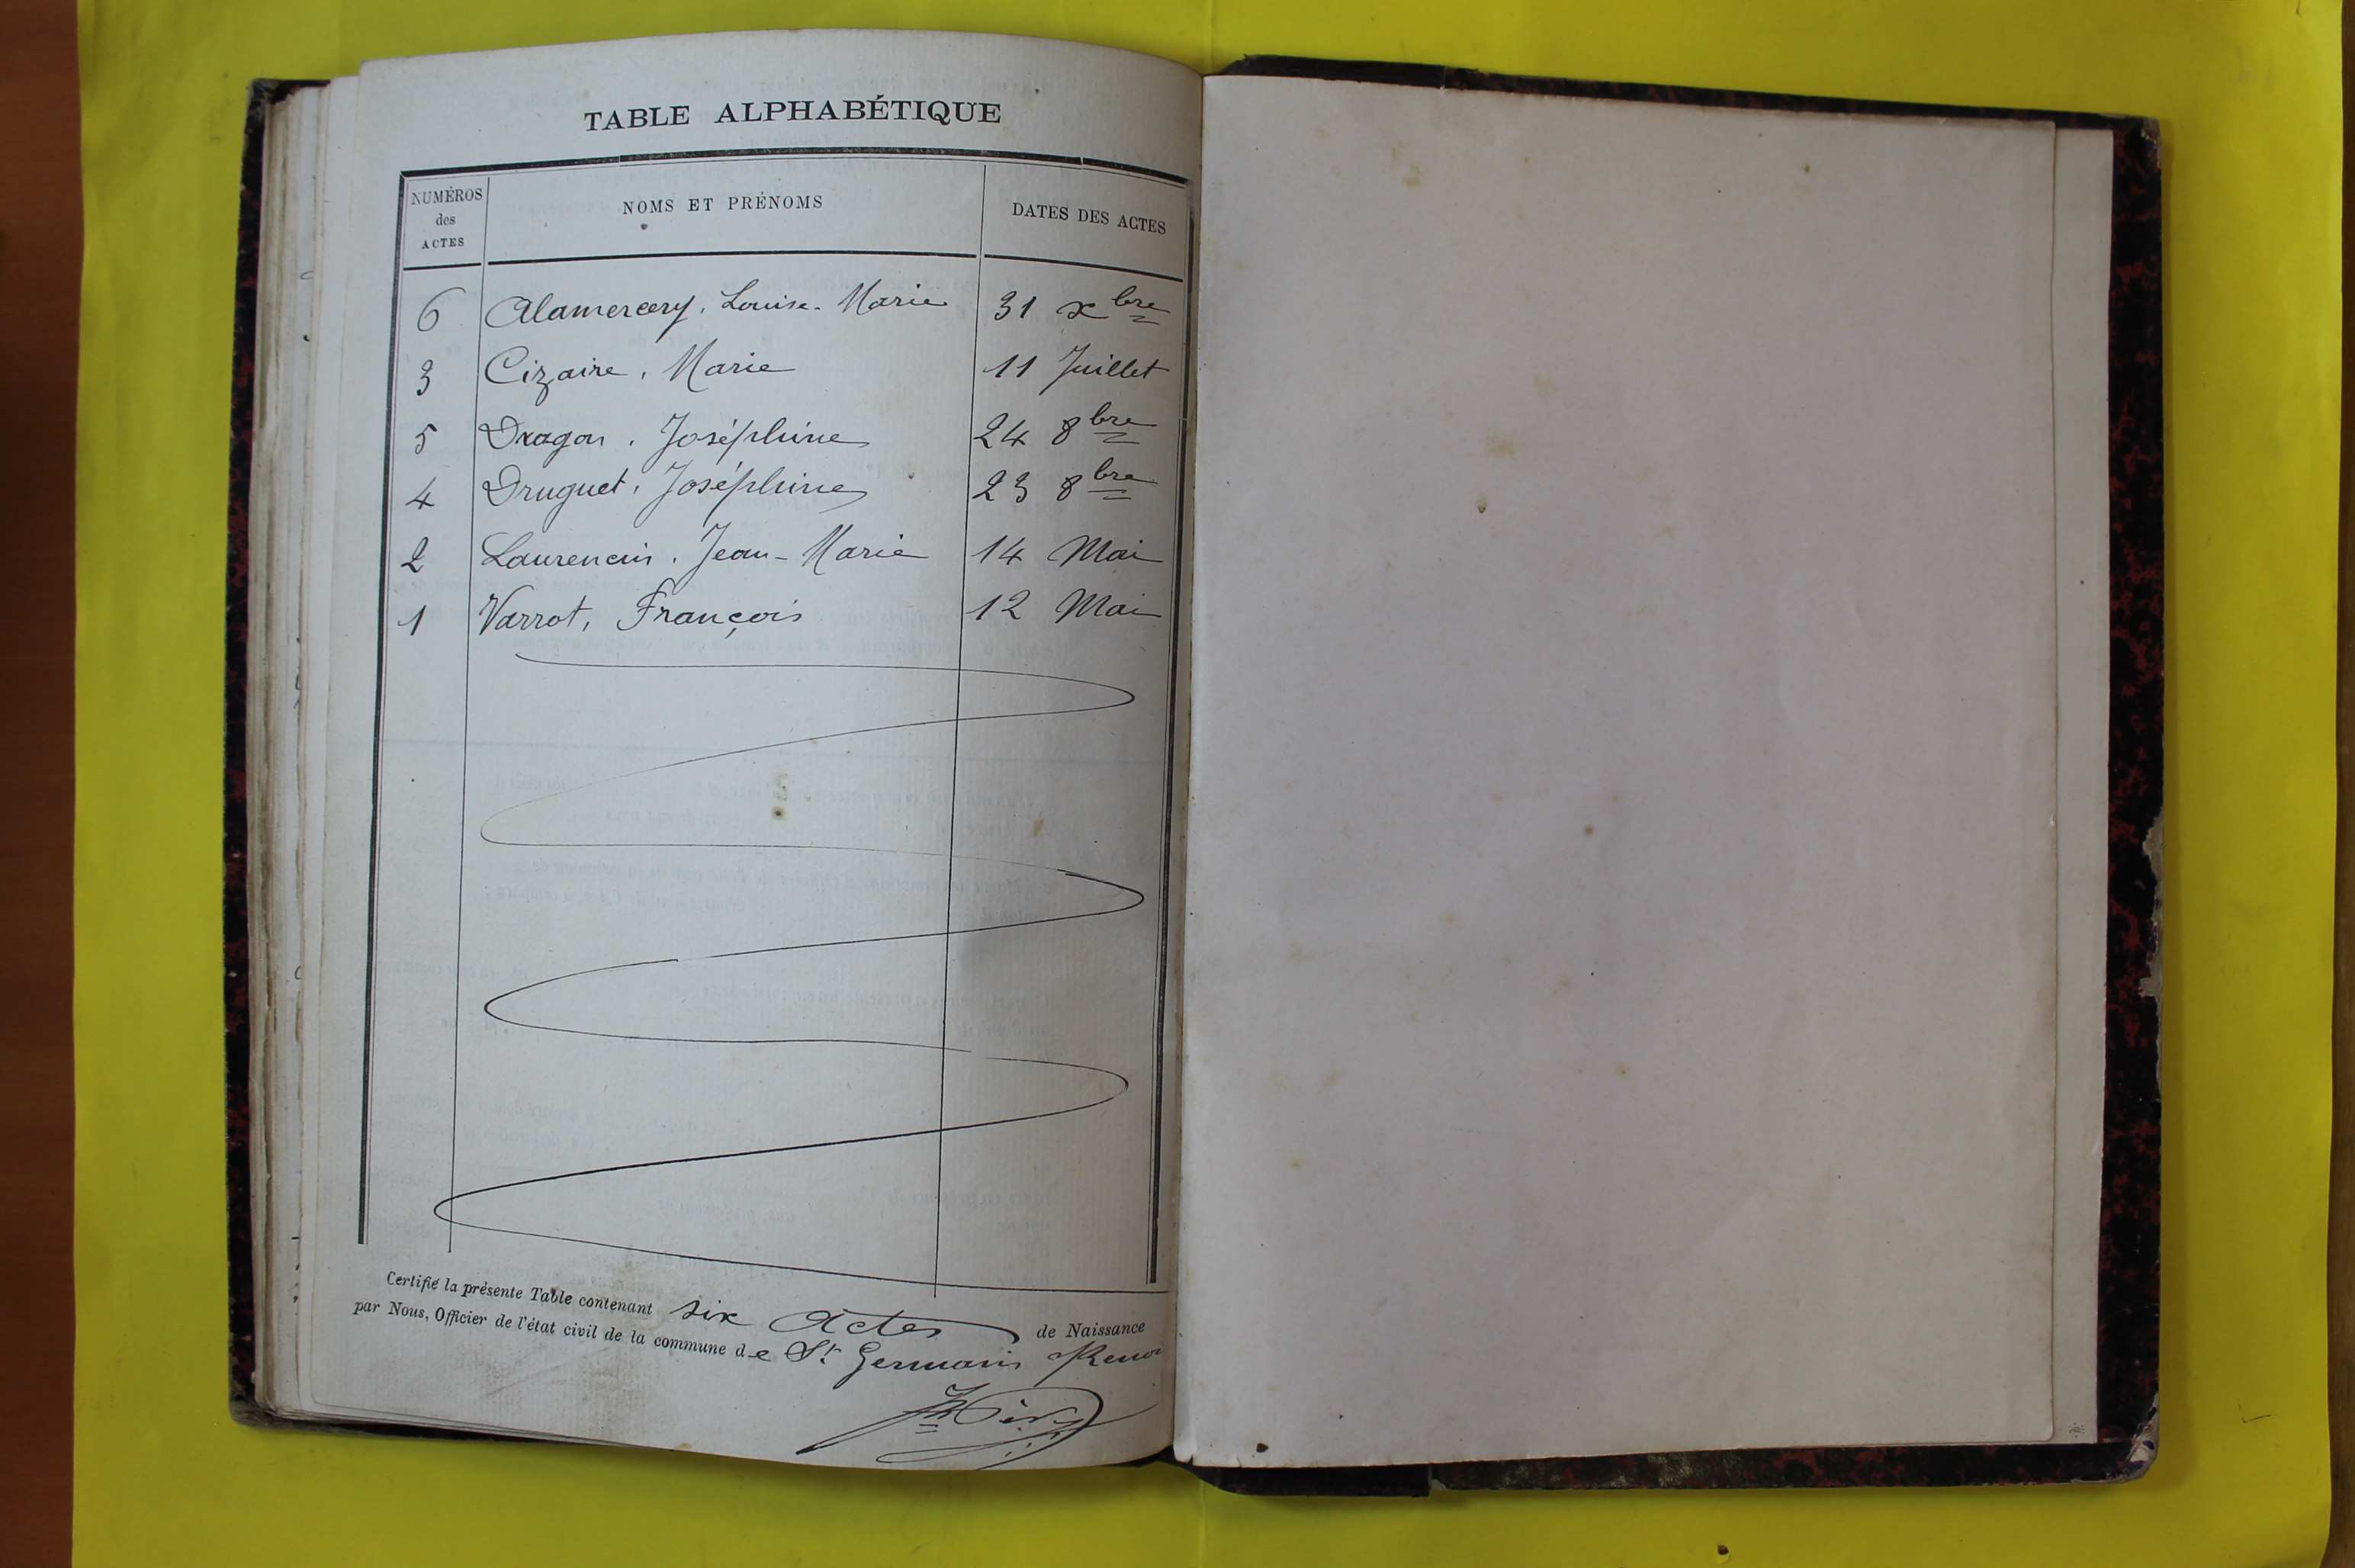 TABLE ALPHABÉTIQUE
NUMÉROS des ACTES NOMS ET PRÉNOMS DATES DES ACTES
6 Alamercery, Louise-Marie 31 xbre
3 Cizaire, Marie 11 Juillet
5 Dragon, Joséphine 24 8bre
4 Druguet, Joséphine 23 8bre
2 Laurencin, Jean-Marie 14 Mai
1 Varrot, François 12 Mai
Certifié la présente Table contenant six Actes de Naissance
par Nous, Officier de l'état civil de la commune de St Germain